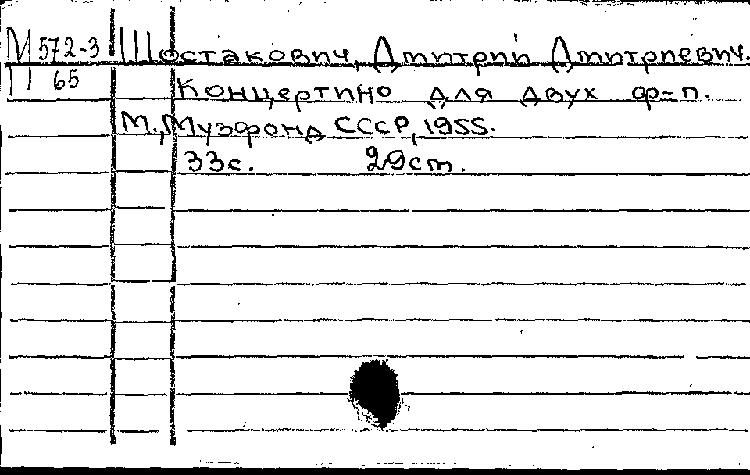 М 572-3 Шостакович, Дмитрий Дмитриевич.
П 65 Концертино для двух ф-п.
М., Музфонд СССР, 1955.
33с. 29ст.